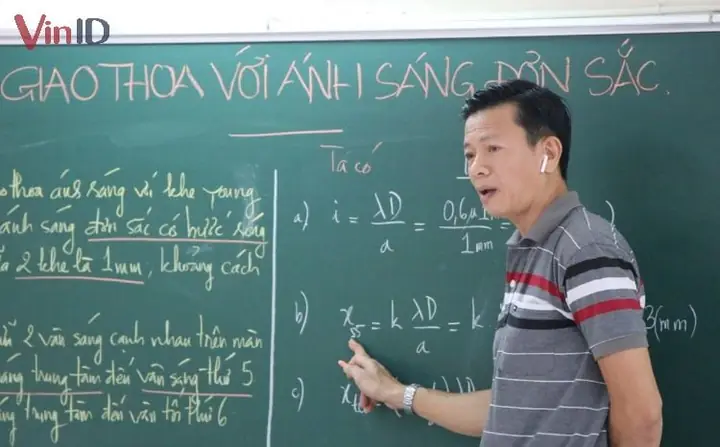 VinID
GIAO THOA VỚI ÁNH SÁNG ĐƠN SẮC.
Ta có
thoa ánh sáng với khe Young
ánh sáng đơn sắc có bước sóng
2 khe là 1mm, khoảng cách
2 vân sáng cạnh nhau trên màn
sáng trung tâm đến vân sáng thứ 5
trung tâm đến vân tối thứ 6
a) i = λD/a = 0,6.1 / 1mm =
b) x_s5 = k λD/a = k 3(mm)
c) x